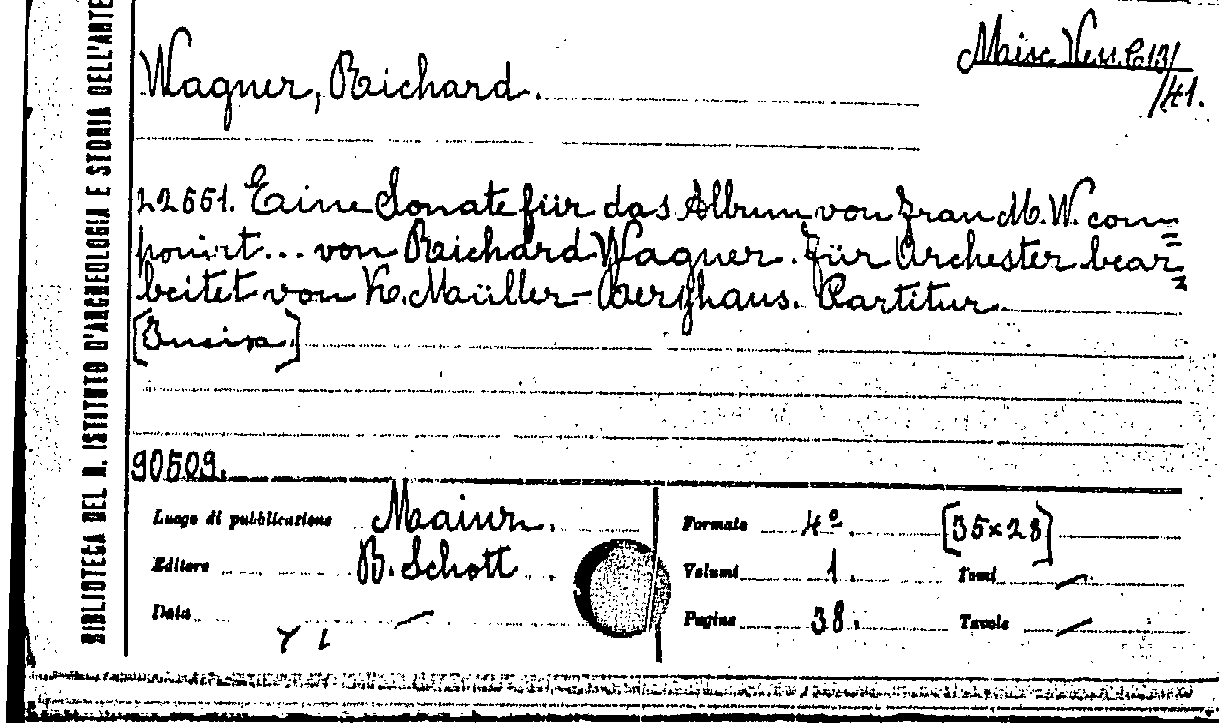 BIBLIOTECA DEL R. ISTITUTO D'ARCHEOLOGIA E STORIA DELL'ARTE
Wagner, Richard.
Misc. Vess. C 13/
/41.
22551. Eine Sonate für das Album von Frau M. W. com=
ponirt... von Richard Wagner. für Orchester bear=
beitet von K. Müller-Berghaus. Partitur.
90509.
Luogo di pubblicazione Mainz.
Editore B. Schott
Data —
Formato 4º. [35×28]
Volumi 1. Tomi —
Pagine 38. Tavole —